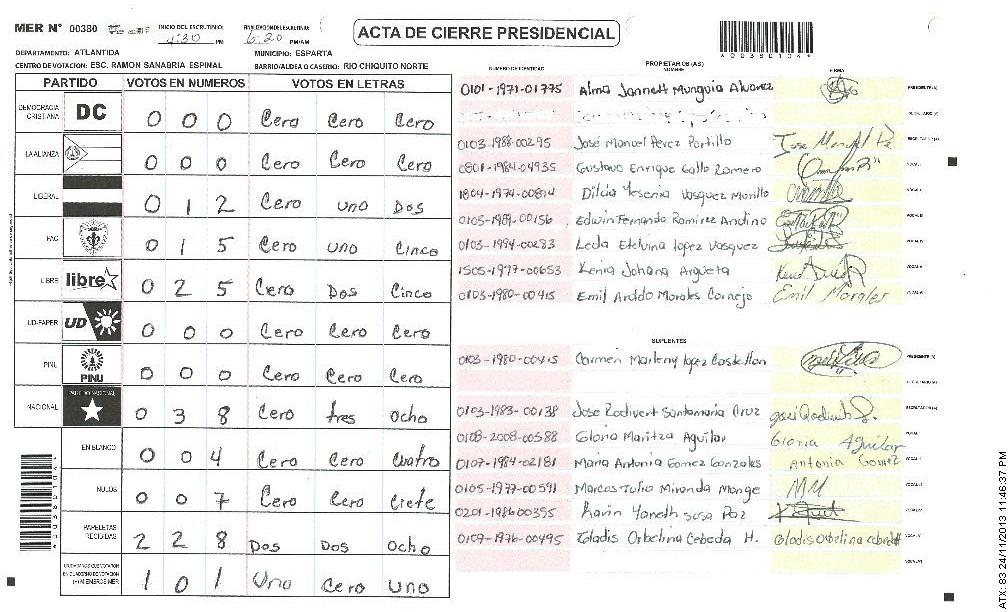 MER N° 00380 INICIO DEL ESCRUTINIO: 4:30 PM FINALIZACION DE ESCRUTINIO: 6:20 PM/AM
ACTA DE CIERRE PRESIDENCIAL
DEPARTAMENTO: ATLANTIDA MUNICIPIO: ESPARTA
CENTRO DE VOTACION: ESC. RAMON SANABRIA ESPINAL BARRIO/ALDEA O CASERIO: RIO CHIQUITO NORTE
PARTIDO VOTOS EN NUMEROS VOTOS EN LETRAS
DEMOCRACIA CRISTIANA DC 0 0 0 Cero Cero Cero
LA ALIANZA 0 0 0 Cero Cero Cero
LIBERAL 0 1 2 Cero uno Dos
PAC 0 1 5 Cero uno Cinco
LIBRE libre 0 2 5 Cero Dos Cinco
UD-FAPER UD 0 0 0 Cero Cero Cero
PINU PINU 0 0 0 Cero Cero Cero
NACIONAL PARTIDO NACIONAL 0 3 8 Cero tres ocho
EN BLANCO 0 0 4 Cero Cero Cuatro
NULOS 0 0 7 Cero Cero Ciete
PAPELETAS RECIBIDAS 2 2 8 Dos Dos Ocho
CIUDADANOS QUE VOTARON EN CUADERNO DE VOTACION (+) MIEMBROS MER 1 0 1 Uno Cero uno
NUMERO DE IDENTIDAD PROPIETARIOS (AS) NOMBRE FIRMA
0101-1971-01775 Alma Jannett Munguia Alvarez PRESIDENTE (A)
0103-1988-00295 José Manuel Perez Portillo
0801-1984-04935 Gustavo Enrique Gallo Romero
1804-1974-00814 Dilcia Yesenia Vasquez Murillo
0103-1989-00156 Edwin Fernando Ramirez Andino
0103-1994-00283 Leda Etelvina lopez Vasquez
1505-1977-00653 Kenia Johana Argueta
0103-1980-00415 Emil Arddo Morales Cornejo Emil Morales
SUPLENTES
0103-1980-00415 Carmen Marleny lopez Castellon PRESIDENTE (A)
0103-1983-00138 Jose Rodivert Santamaria Cruz
0108-2008-00588 Gloria Maritza Aguilar Gloria Aguilar
0107-1984-02181 Maria Antonia Gomez Gonzales Antonia Gomez
0105-1977-00591 Marcos Tulio Miranda Monge MM
0201-198600355 Karin Yaneth sosa Paz
0109-1976-00495 Gladis Orbelina Cebeda H.
ATX: 83 24/11/2013 11:46:37 PM